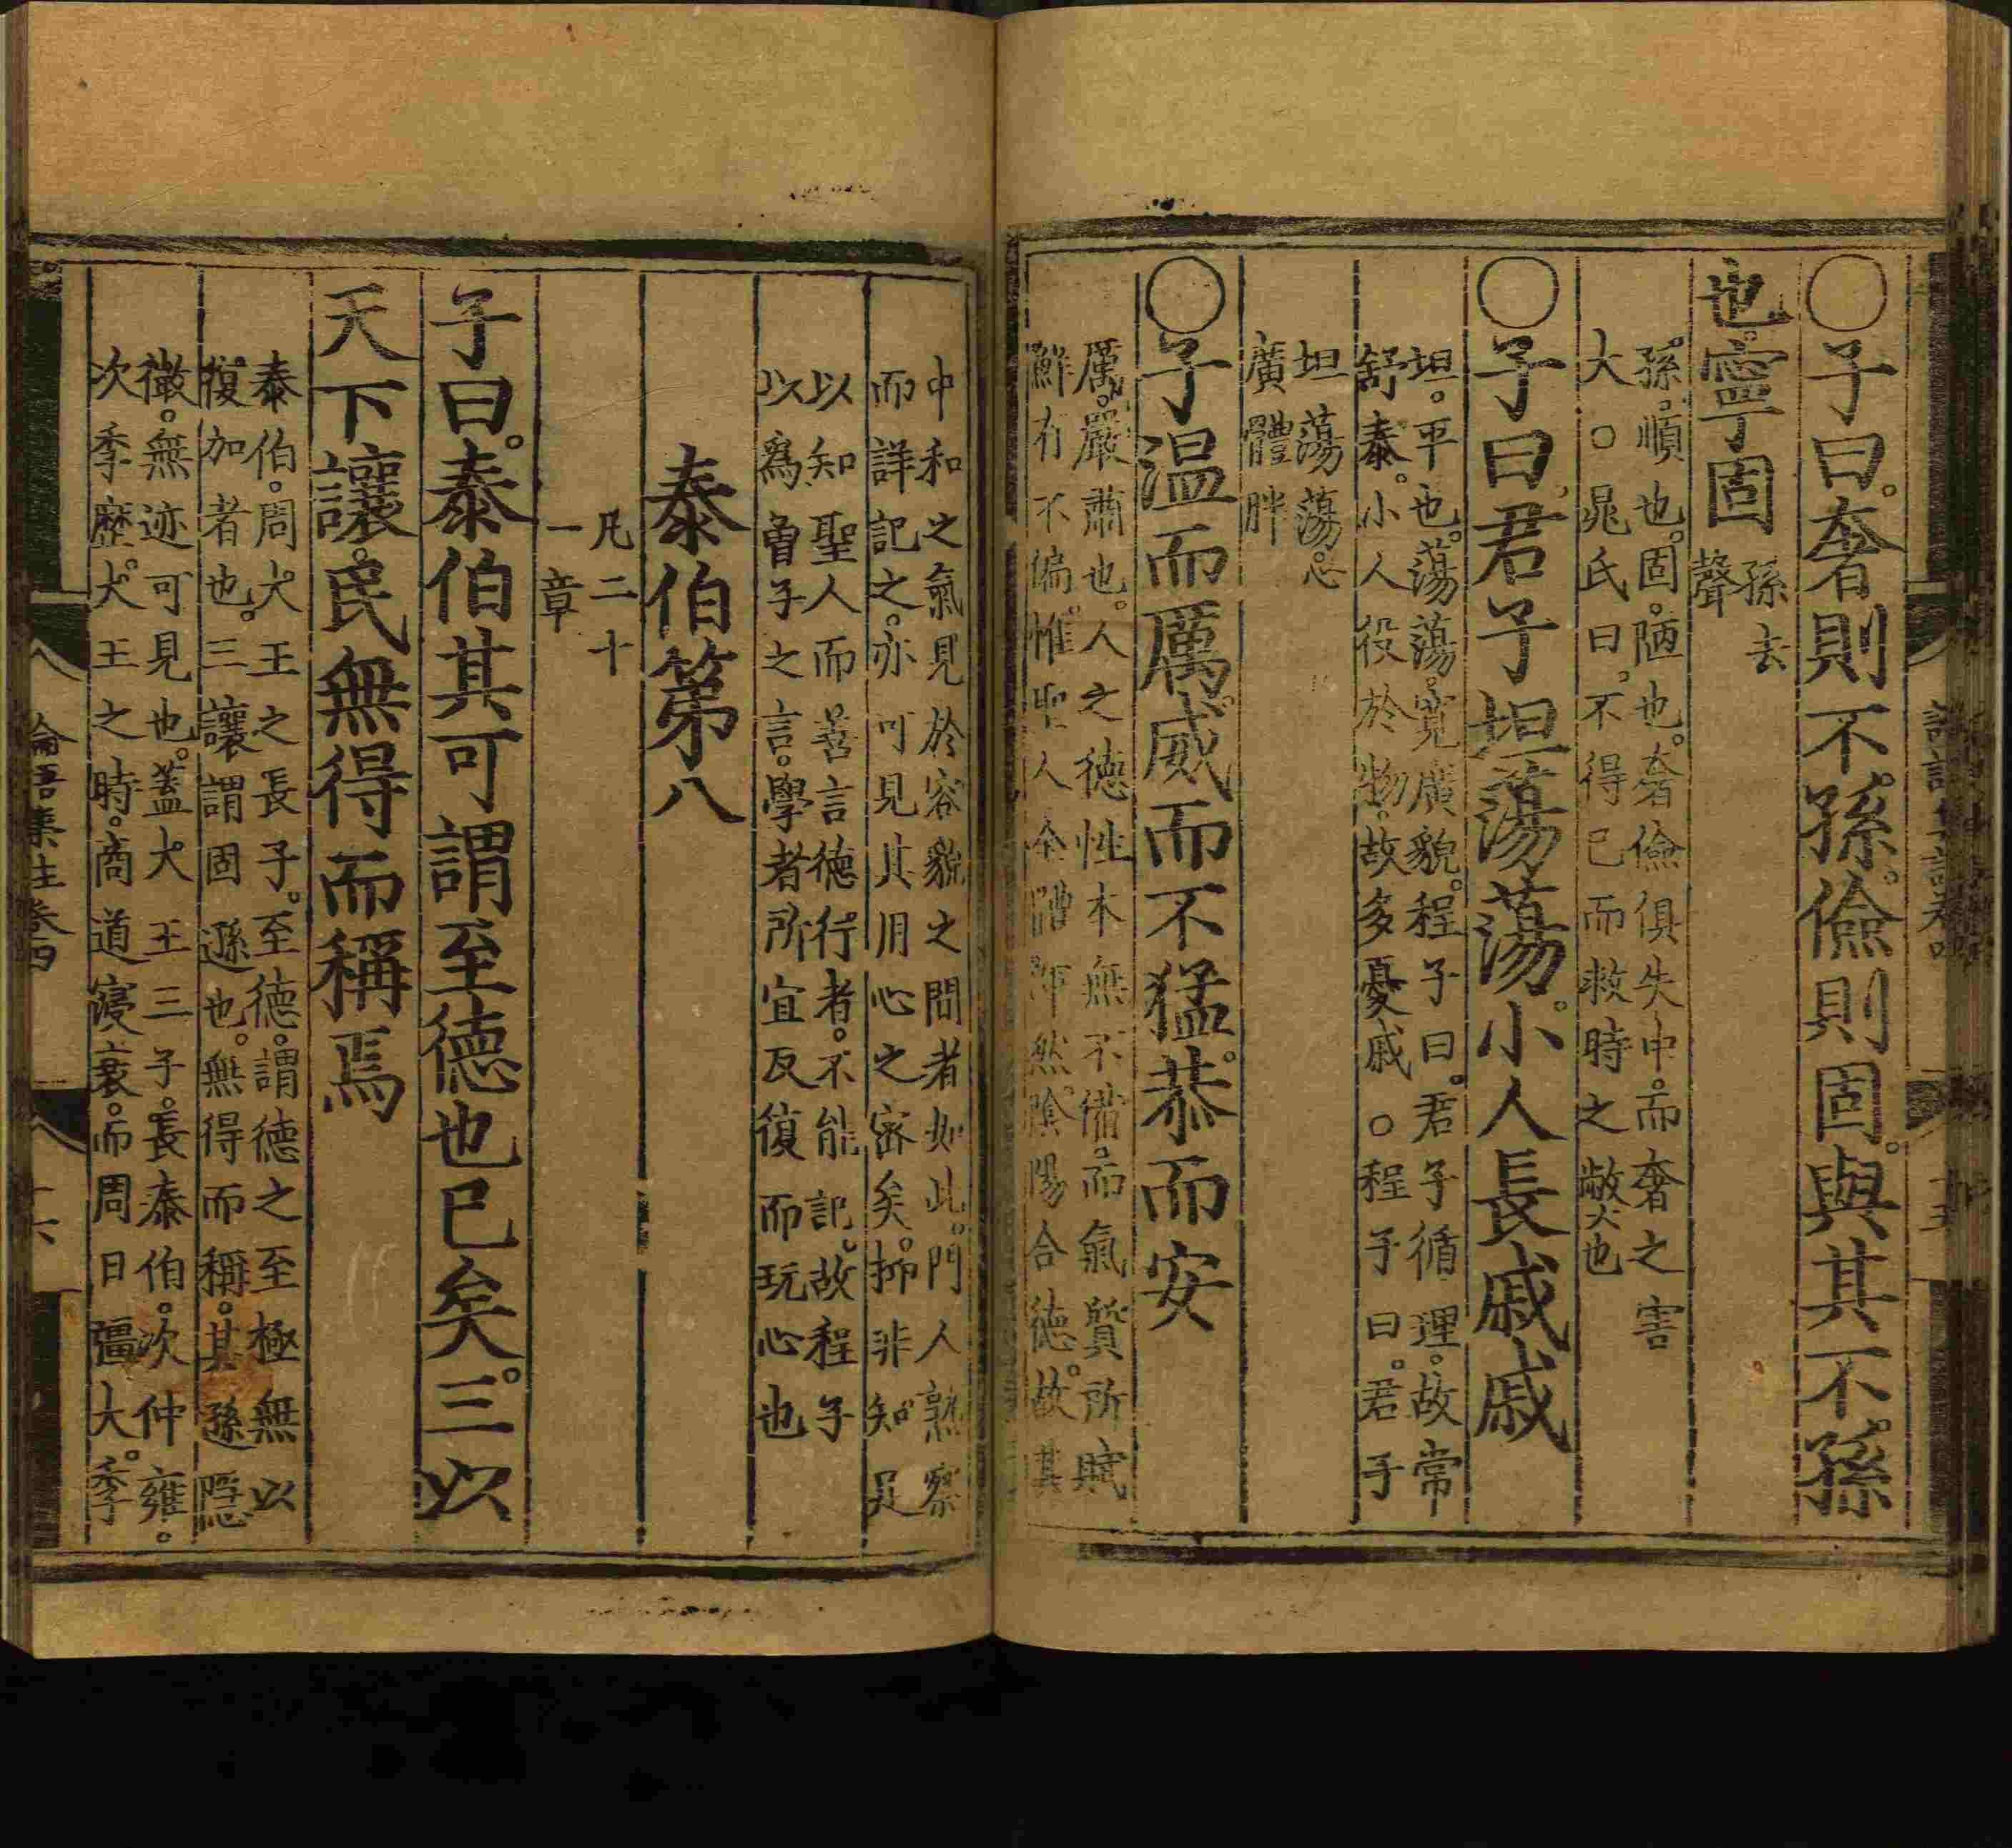 ○子曰。奢則不孫。儉則固。與其不孫
也。寧固
孫去
聲
孫。順也。固。陋也。奢儉俱失中。而奢之害
大○晁氏曰。不得已而救時之敝也
○子曰。君子坦蕩蕩。小人長戚戚
坦。平也。蕩蕩。寬廣貌。程子曰。君子循理。故常
舒泰。小人役於物。故多憂戚○程子曰。君子
坦蕩蕩。心
廣體胖
○子温而厲。威而不猛。恭而安
厲。嚴肅也。人之德性本無不備。而氣質所賦
鮮有不偏。惟聖人全體渾然。陰陽合德。故其
中和之氣見於容貌之間者如此。門人熟察
而詳記之。亦可見其用心之密矣。抑非知足
以知聖人而善言德行者。不能記。故程子
以爲曾子之言。學者所宜反復而玩心也
泰伯第八
凡二十
一章
子曰。泰伯其可謂至德也已矣。三以
天下讓。民無得而稱焉
泰伯。周大王之長子。至德。謂德之至極無以
復加者也。三讓謂固遜也。無得而稱。其遜隱
微。無迹可見也。蓋大王三子。長泰伯。次仲雍。
次季歷。大王之時。商道寖衰。而周日彊大。季
論語集註卷四
十六